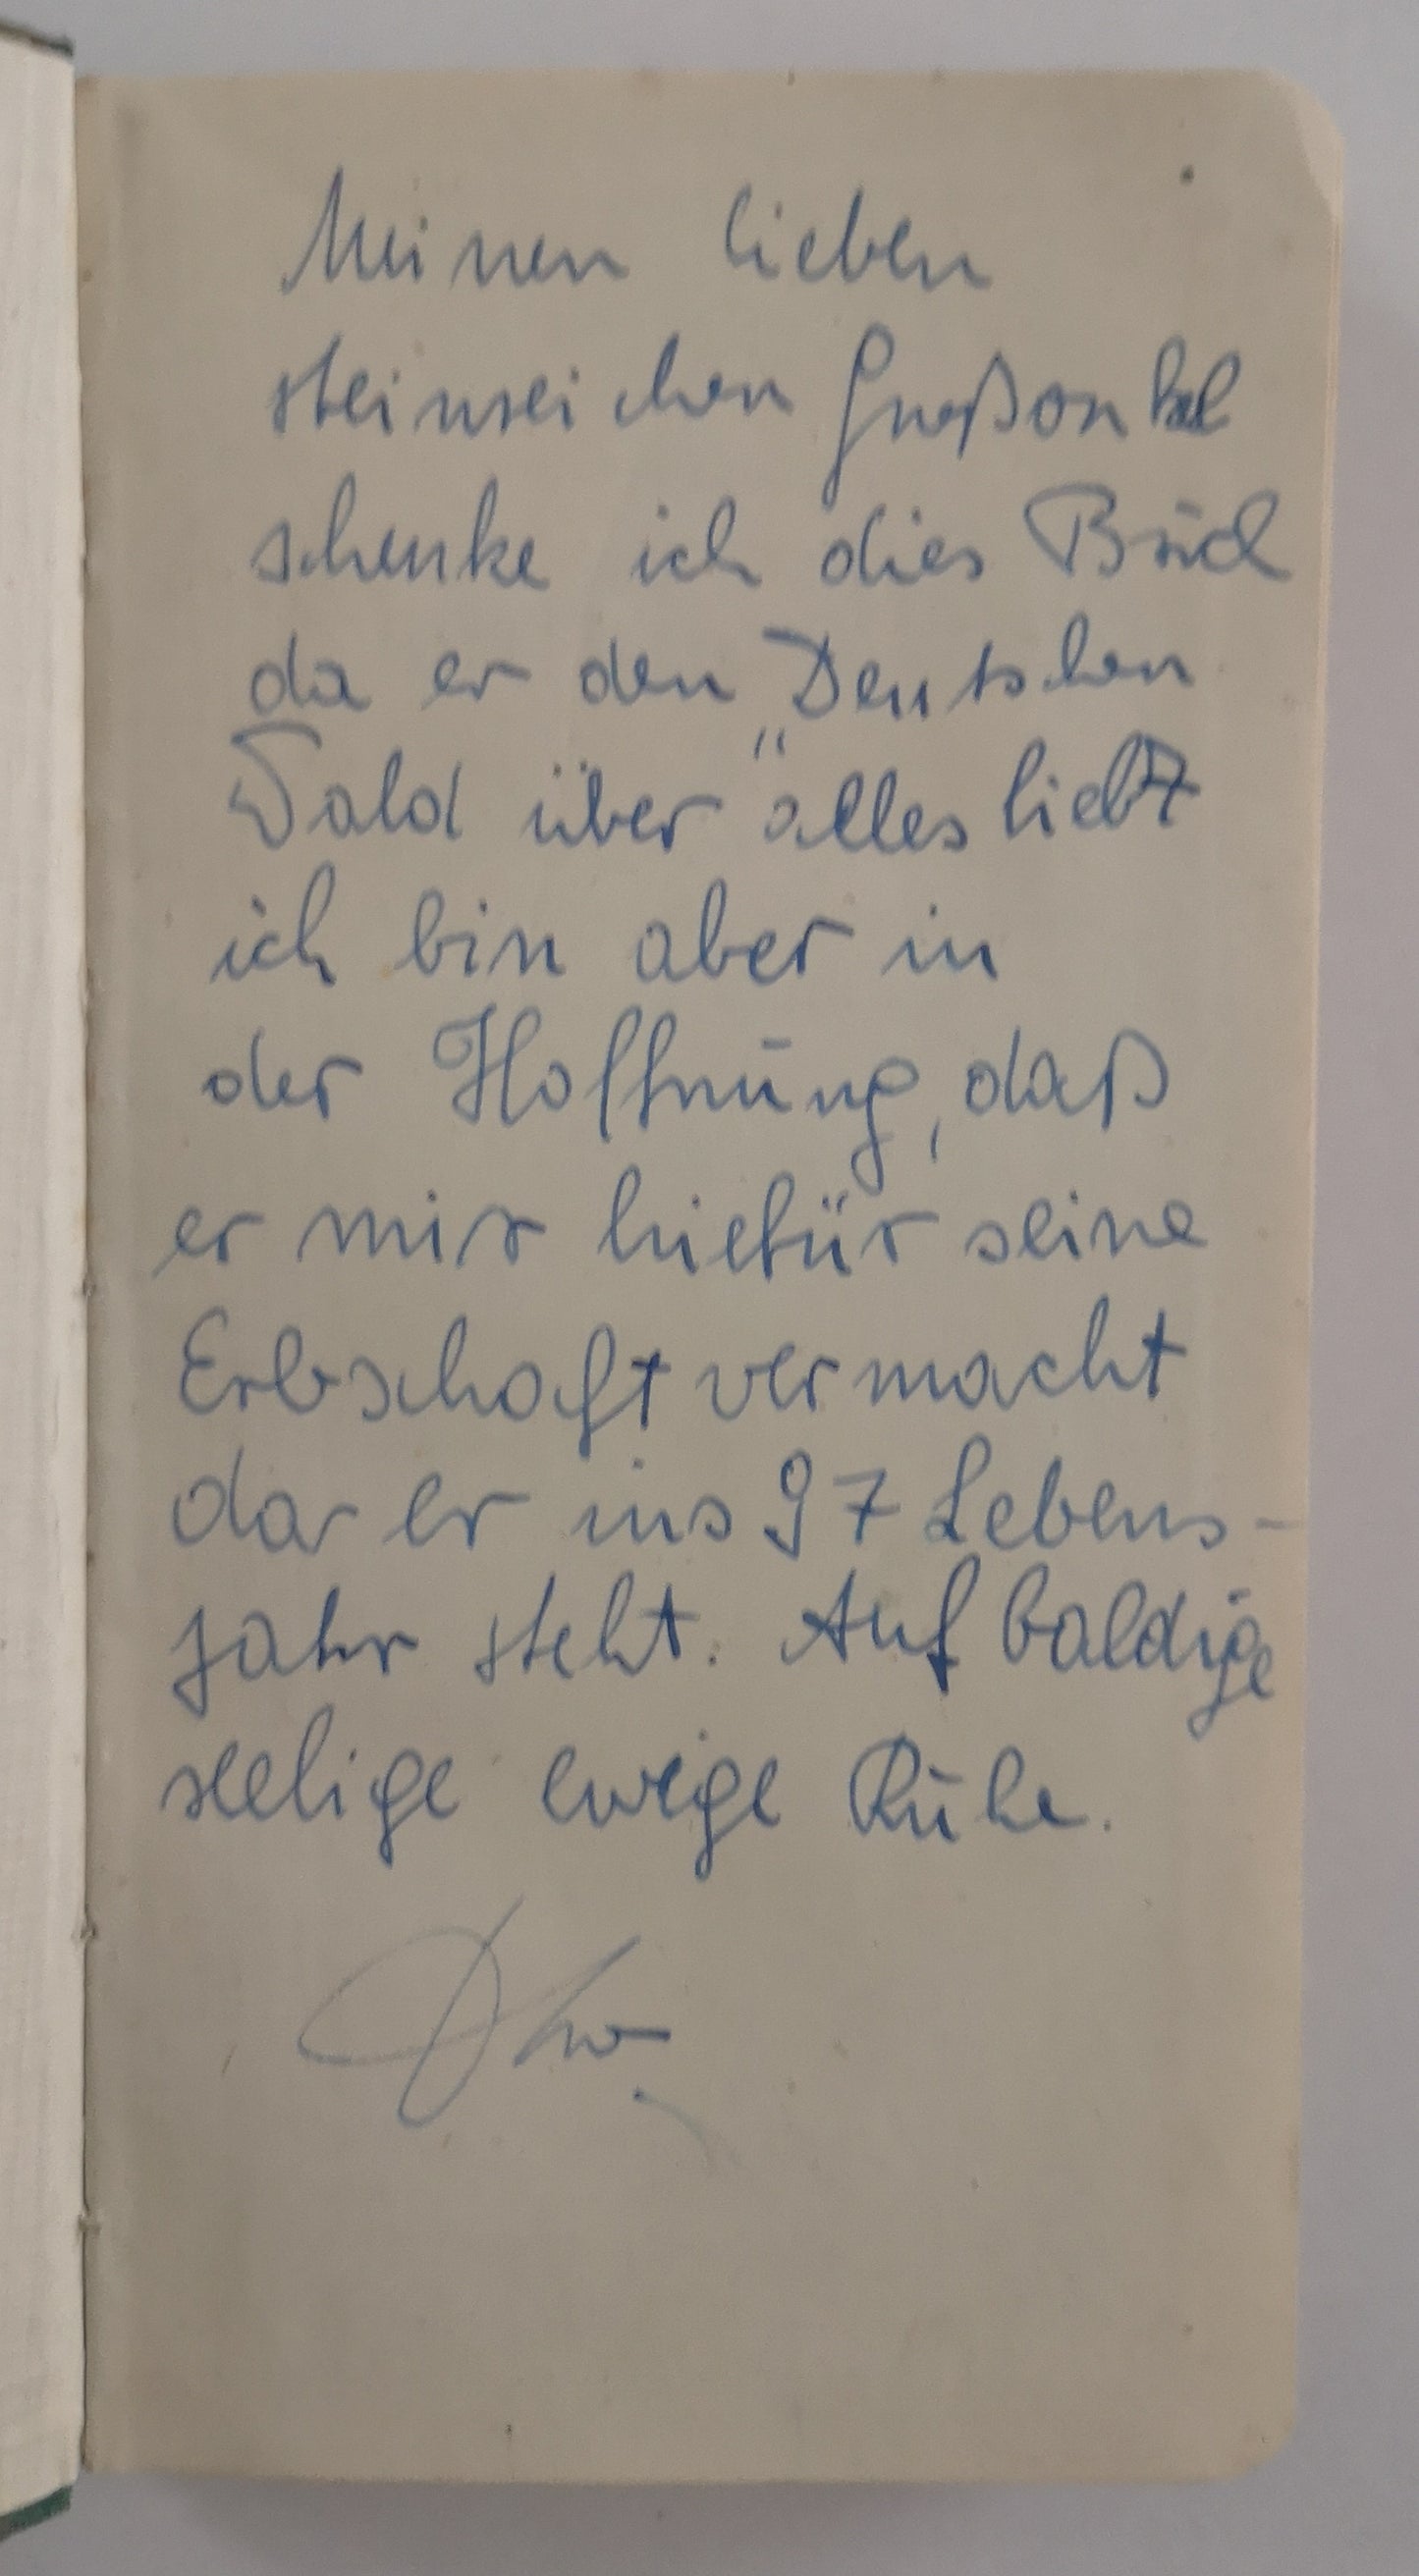 Meinen lieben
steinreichen Großonkel
schenke ich dies Buch
da er den "Deutschen
Wald über "alles liebt
ich bin aber in
der Hoffnung, daß
er mir hiefür seine
Erbschaft vermacht
da er ins 97 Lebens-
jahr steht. Auf baldige
seelige ewige Ruhe.